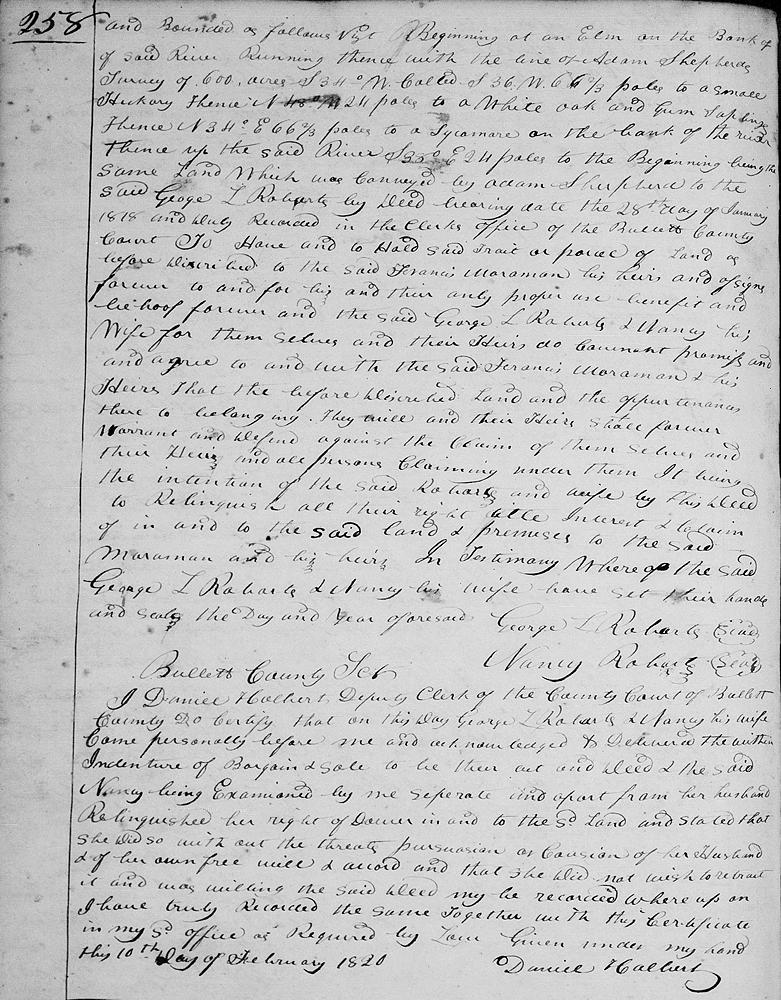 258
and Bounded as follows Viz Beginning at an Elm on the Bank of
of said River Running thence with the line of Adam Shepherds
Survey of 600, acres S 34° W. Called S 36. W. 66 2/3 poles to a smale
Hickory Thence N 48° W 24 poles to a White oak and Gum Saplings
Thence N 34° E 66 2/3 poles to a Sycamore on the bank of the river
thence up the said River S 35° E 24 poles to the Beginning being the
same Land Which was Conveyed by adam Shepherd to the
said Geoge L Roberts by Deed bearing date the 28th day of January
1818 and Duly Recorded in the Clerks office of the Bullett County
Court To Have and to Hold said Trait or parcel of Land as
before Discribed to the said Francis Moraman his heirs and assigns
forever to and for his and their only proper use benefit and
behoof forever and the said George L Roberts & Nancy his
Wife for them selves and their Heirs do Covenant promiss and
and agree to and with the said Francis Moraman & his
Heirs that the before Discribed Land and the oppurtenancs
there to belonging. They will and their Heirs shall forever
Warrant and Defend against the Claim of them selves and
their Heirs and all persons Claiming under them It being
the intention of the said Roberts and wife by this Deed
to Relinquish all their right title Interest & Claim
of in and to the said land & premises to the said
Moraman and his heirs In Testimony Whereof the said
George L Roberts & Nancy his wife have set their hands
and seals the Day and year aforesaid George L Roberts (Seal)
Nancy Roberts (Seal)
Bullett County Sct
I Daniel Holbert Deputy Clerk of the County Court of Bullett
County Do Certify that on this Day George L Roberts & Nancy his wife
Came personally before me and acknowledged & Delivered the within
Indenture of Bargain & Sale to be their act and Deed & the said
Nancy being Examioned by me seperate and apart from her husband
Relinquished her right of Dower in and to the sd Land and stated that
she Did so with out the threats pursuasion or Coursion of her Husband
& of her own free will & accord and that she Did not wish to retract
it and was willing the said Deed my be recorded where up on
I have truly Recorded the same Together with this Certificate
in my sd office as Required by Law Given under my hand
this 10th Day of February 1820 Daniel Holbert